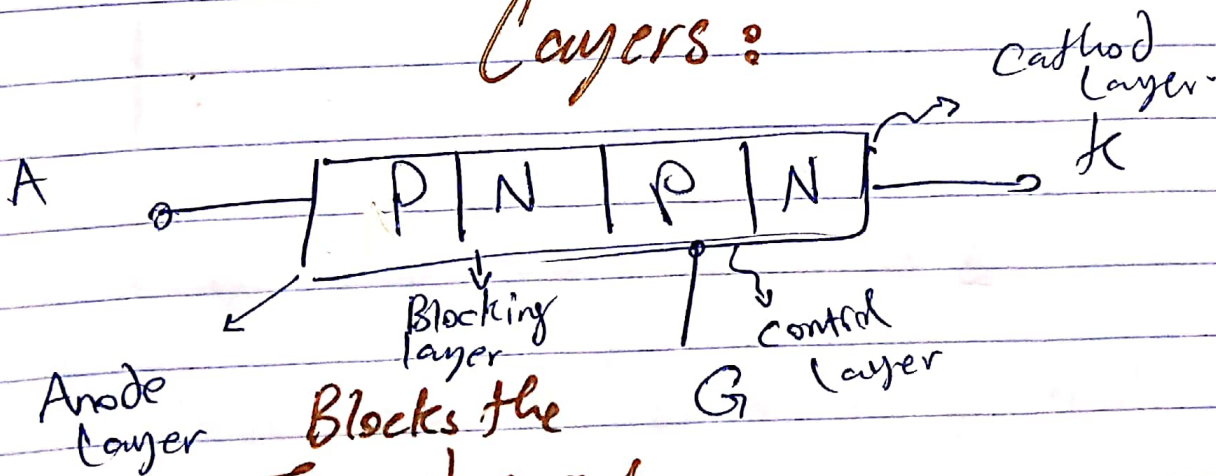 Layers :
Cathod
Layer
A
P N P N
K
Blocking
layer
control
layer
Anode
Layer
G
Blocks the